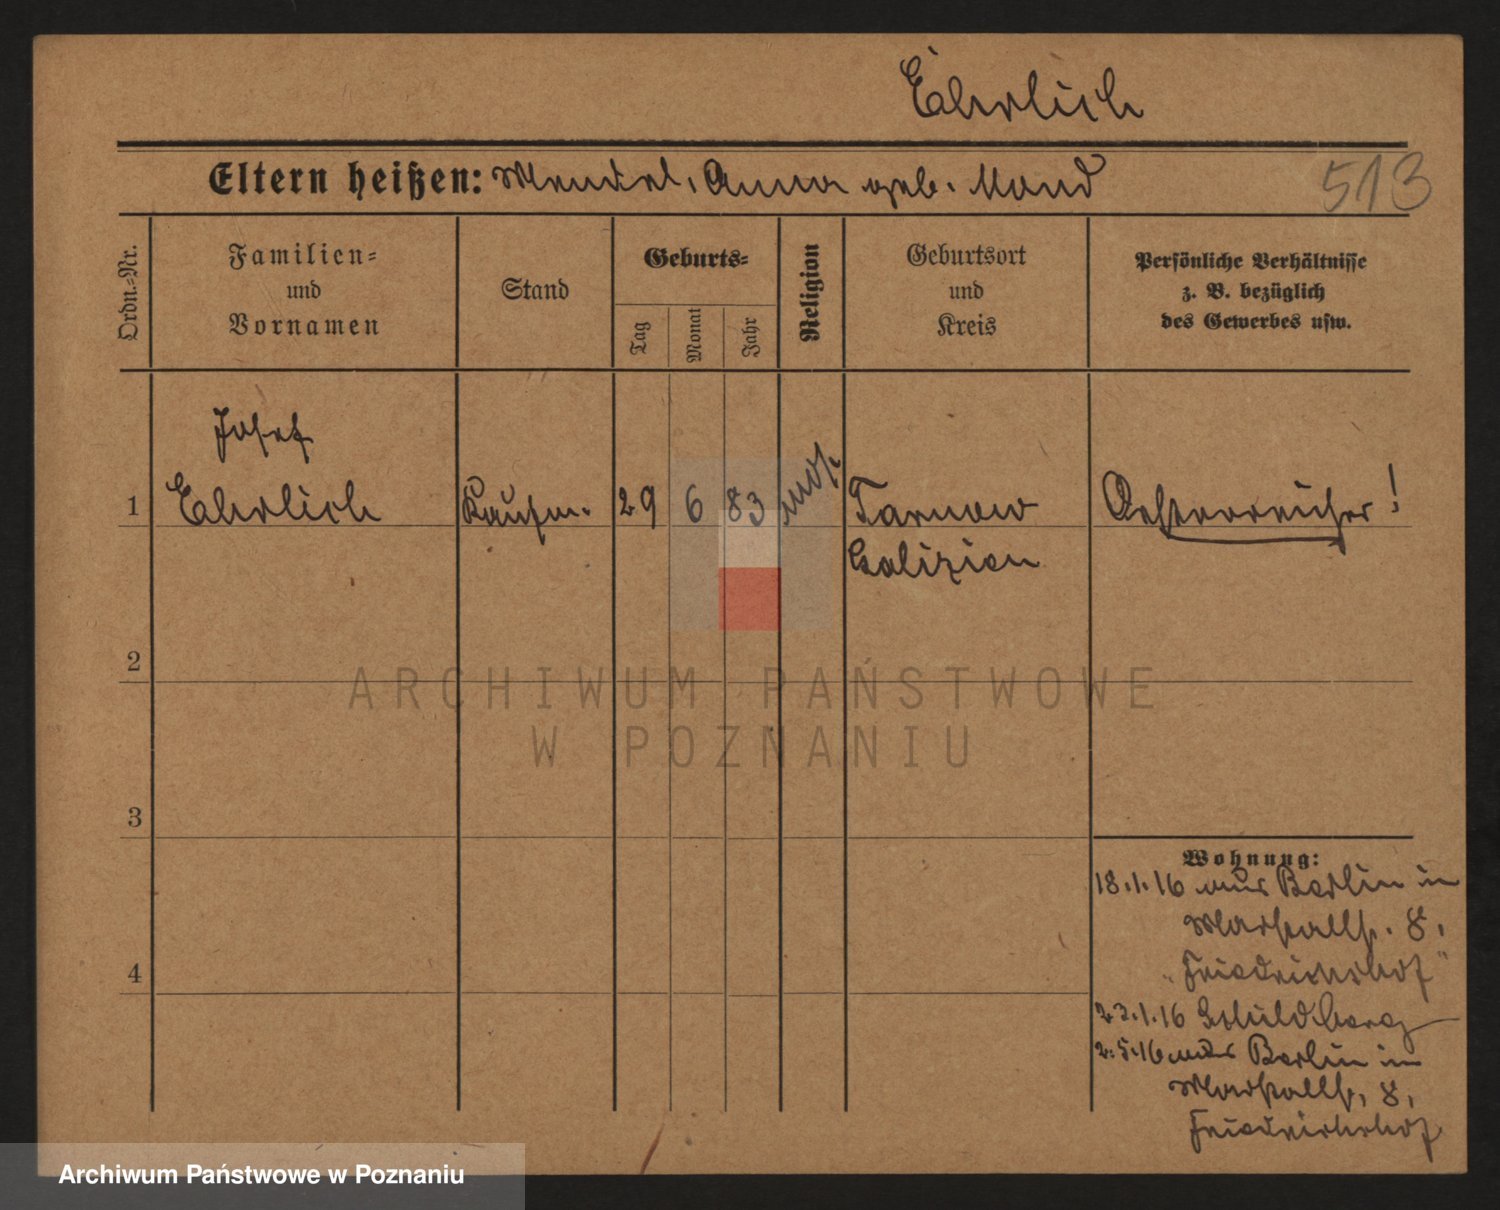 Ehrlich
Eltern heißen: Mendel, Anna geb. Mond
513
Ordn.-Nr.
Familien-
und
Vornamen
Stand
Geburts-
Tag
Monat
Jahr
Religion
Geburtsort
und
Kreis
Persönliche Verhältnisse
z. B. bezüglich
des Gewerbes usw.
Josef
1 Ehrlich Kaufm. 29 6 83 mos. Tarnow Oesterreicher!
Galizien
2
ARCHIWUM PAŃSTWOWE
W POZNANIU
3
Wohnung:
18.1.16 aus Berlin in
8,
"Friedrichshof"
4
23.1.16 Schildberg
2.5.16 aus Berlin in
8,
Friedrichshof
Archiwum Państwowe w Poznaniu